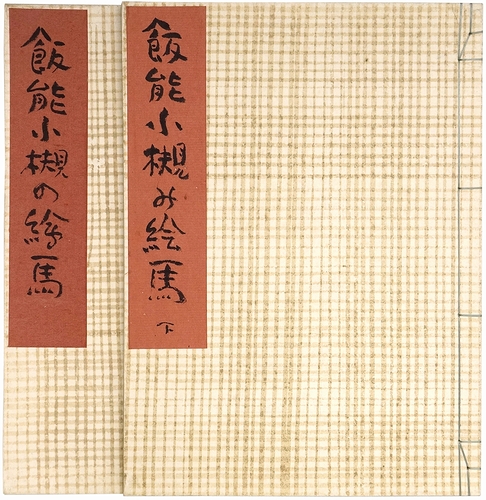 飯能小槻の絵馬
飯能小槻の絵馬 下